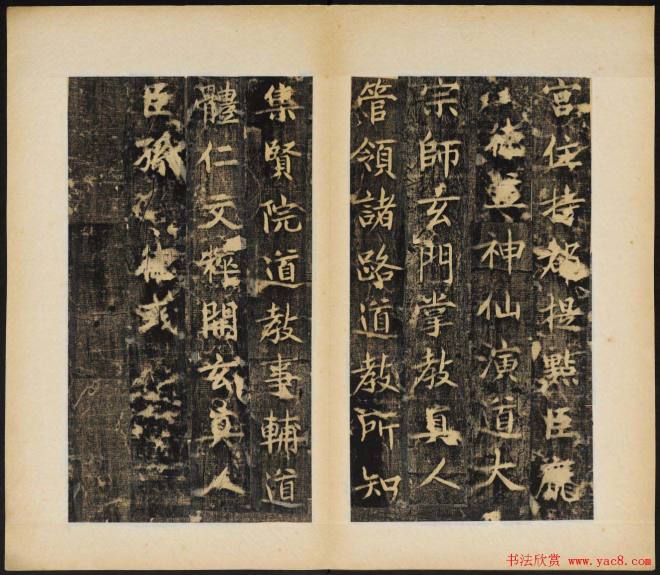 宫住持都提點臣龐
德真神仙演道大
宗師玄門掌教真人
管領諸路道教所知
集賢院道教事輔道
體仁文粹開玄真人
臣孫德彧
书法欣赏 www.yac8.com